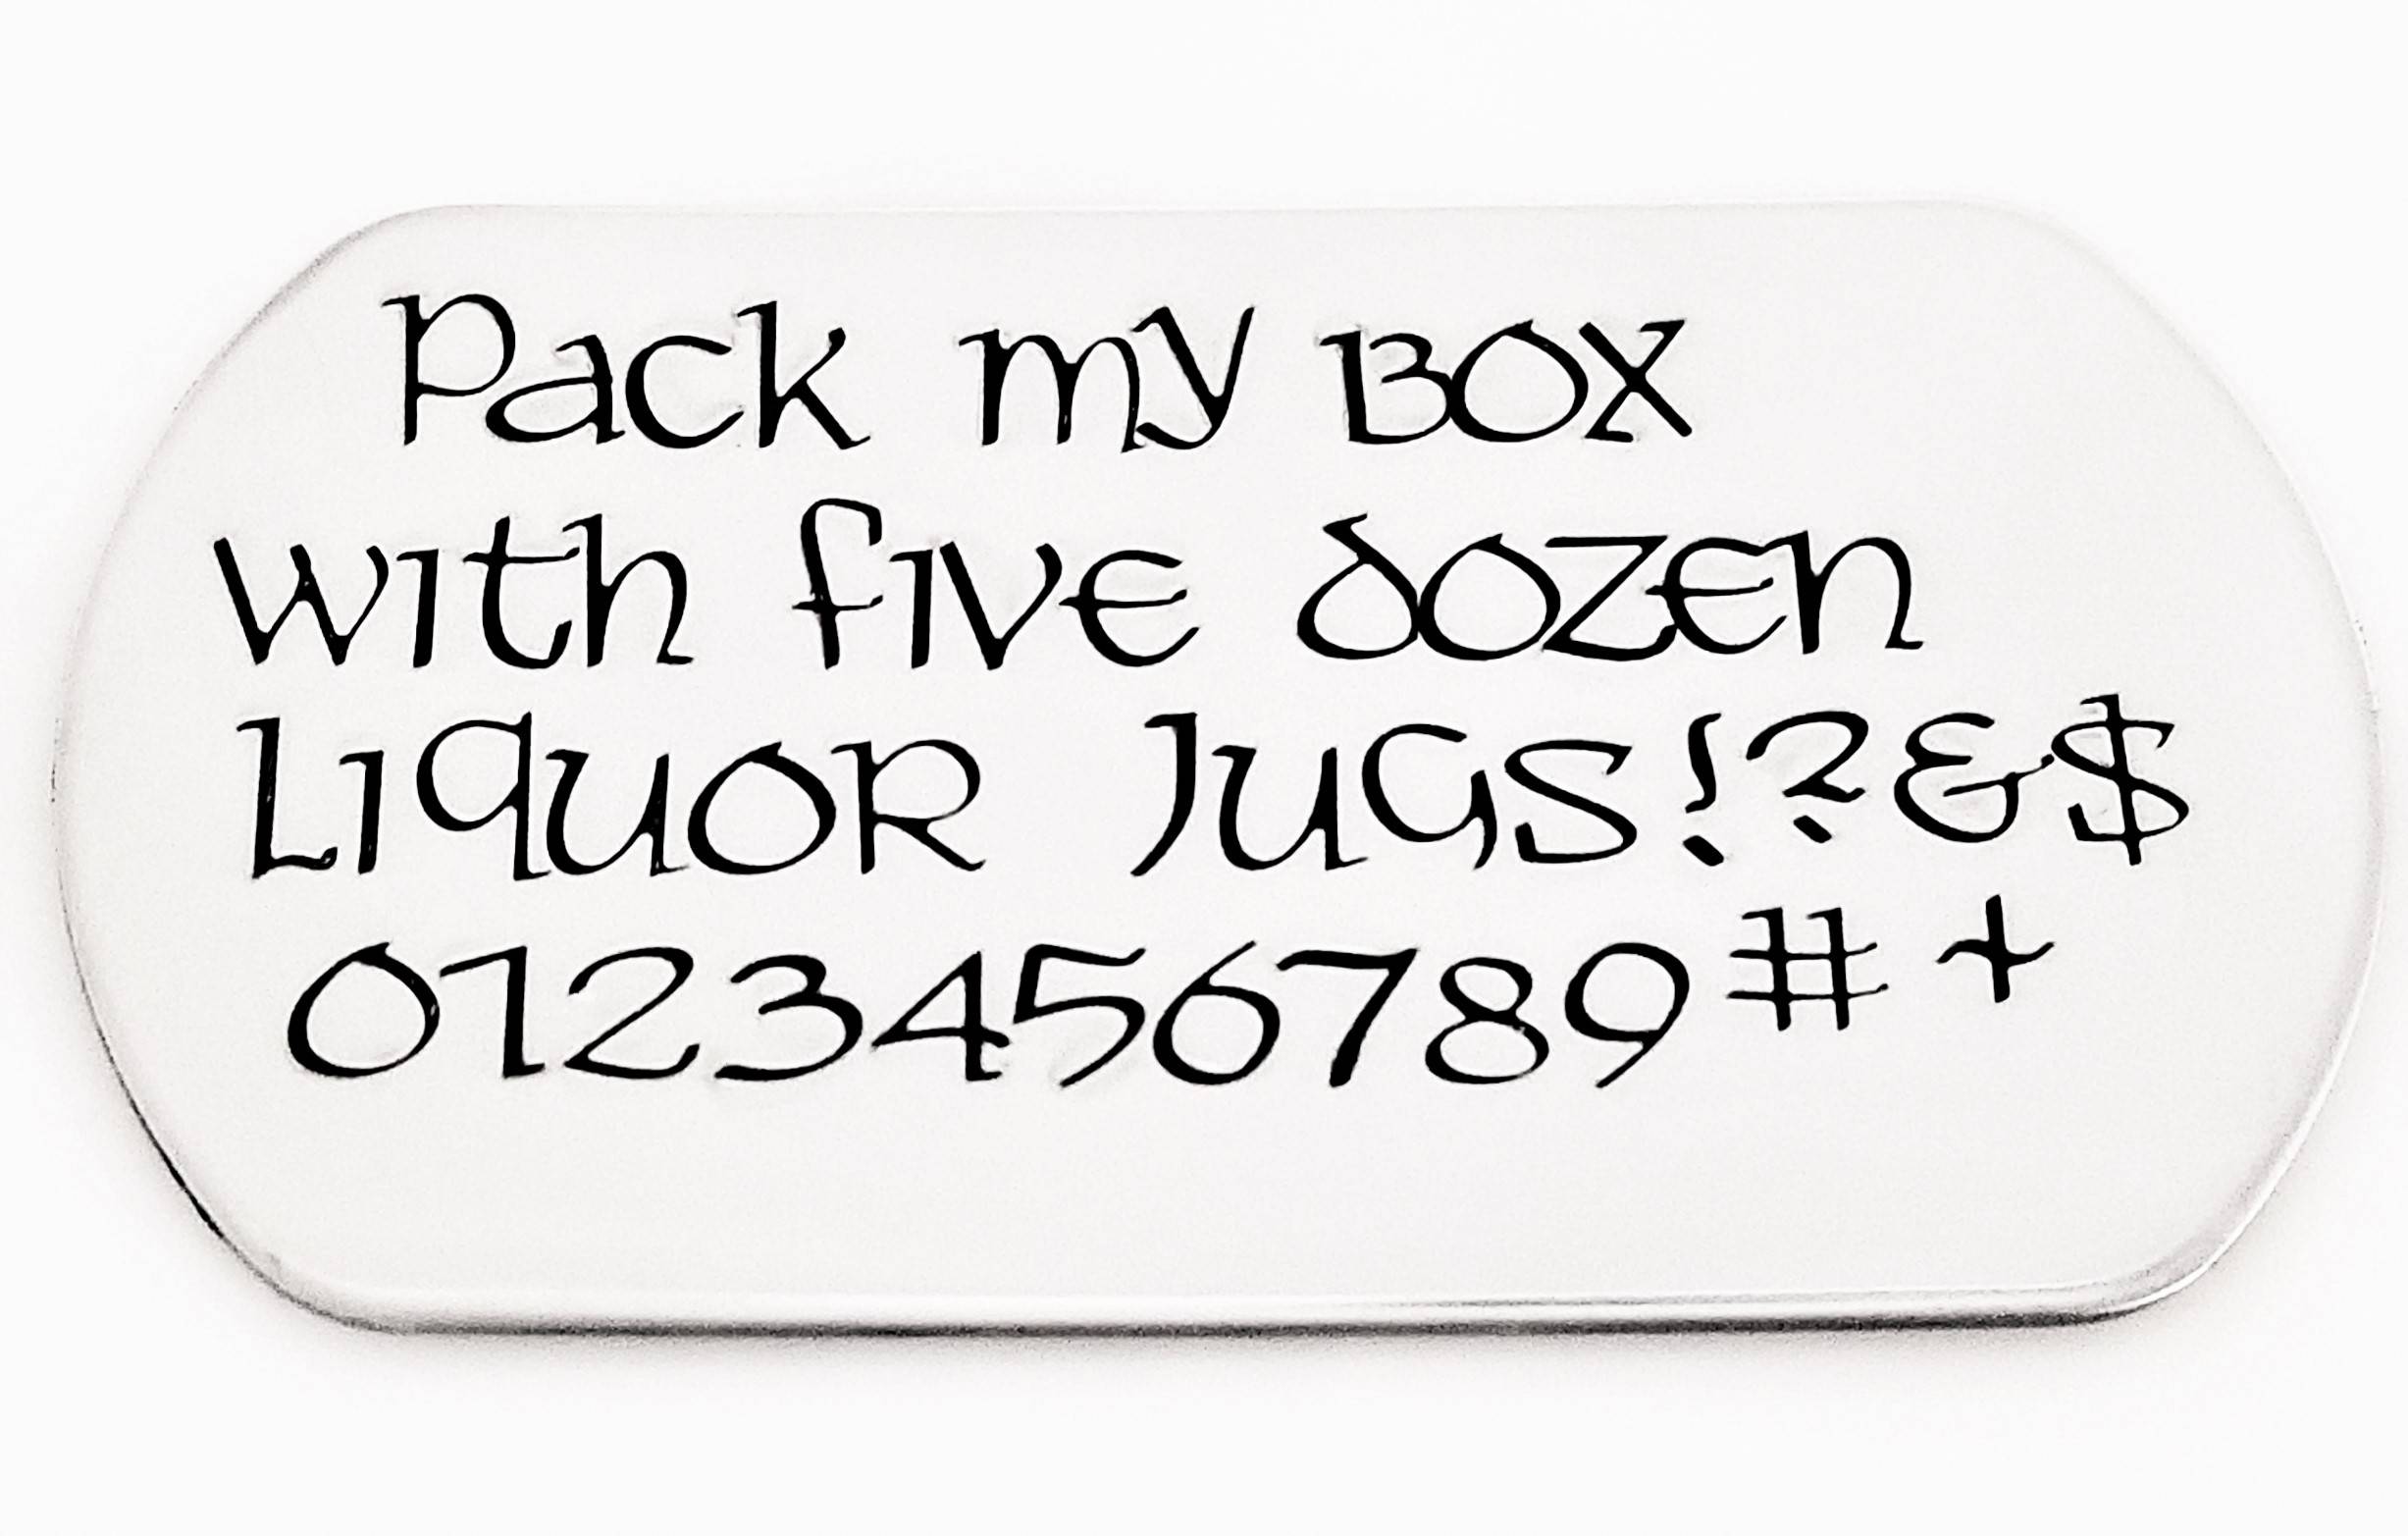 Pack my Box
with five dozen
Liquor Jugs!?&$
0123456789# +